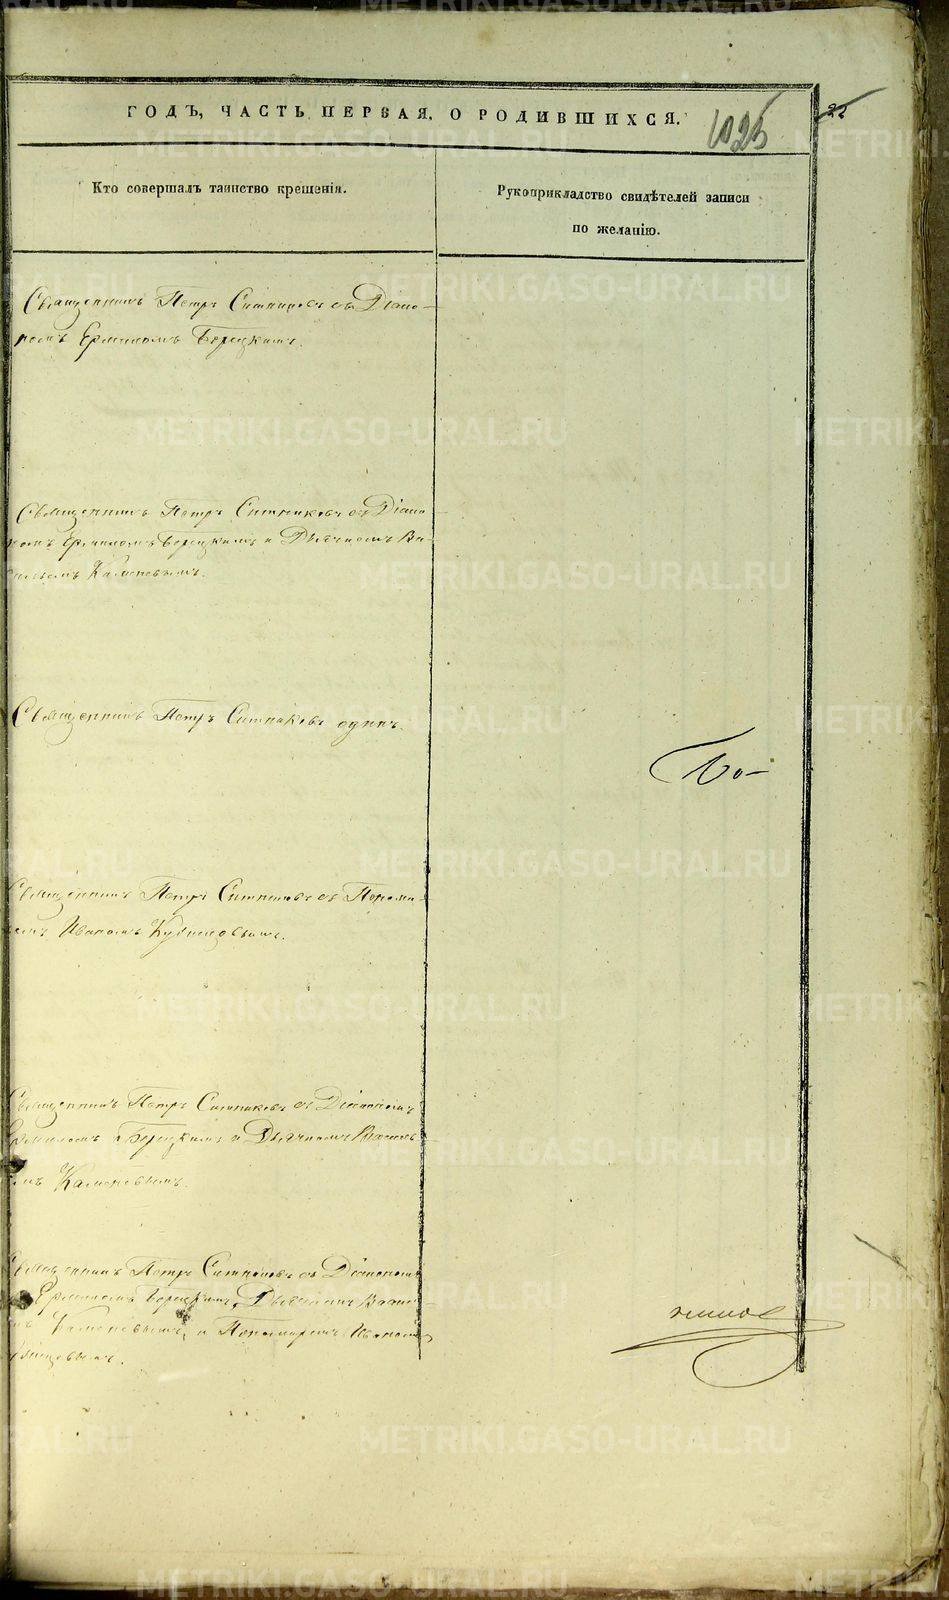 ГОДЪ, ЧАСТЬ ПЕРВАЯ, О РОДИВШИХСЯ.
1025
22
Кто совершалъ таинство крещенія.
Рукоприкладство свидѣтелей записи
по желанію.
Священникъ Петръ Ситниковъ съ Діако-
номъ Ермиломъ Борецкимъ.
Священникъ Петръ Ситниковъ съ Діако
номъ Ермиломъ Борецкимъ и Дьячкомъ Ва-
сильемъ Каменевымъ.
Священникъ Петръ Ситниковъ одинъ.
Священникъ Петръ Ситниковъ съ Понома-
ремъ Иваномъ Кузнецовымъ.
Священникъ Петръ Ситниковъ съ Діакономъ
Ермиломъ Борецкимъ и Дьячкомъ Василь
емъ Каменевымъ.
Священникъ Петръ Ситниковъ съ Діакономъ
Ермиломъ Борецкимъ, Дьячкомъ Васил
емъ Каменевымъ, и Пономаремъ Иваномъ
Кузнецовымъ.
METRIKI.GASO-URAL.RU